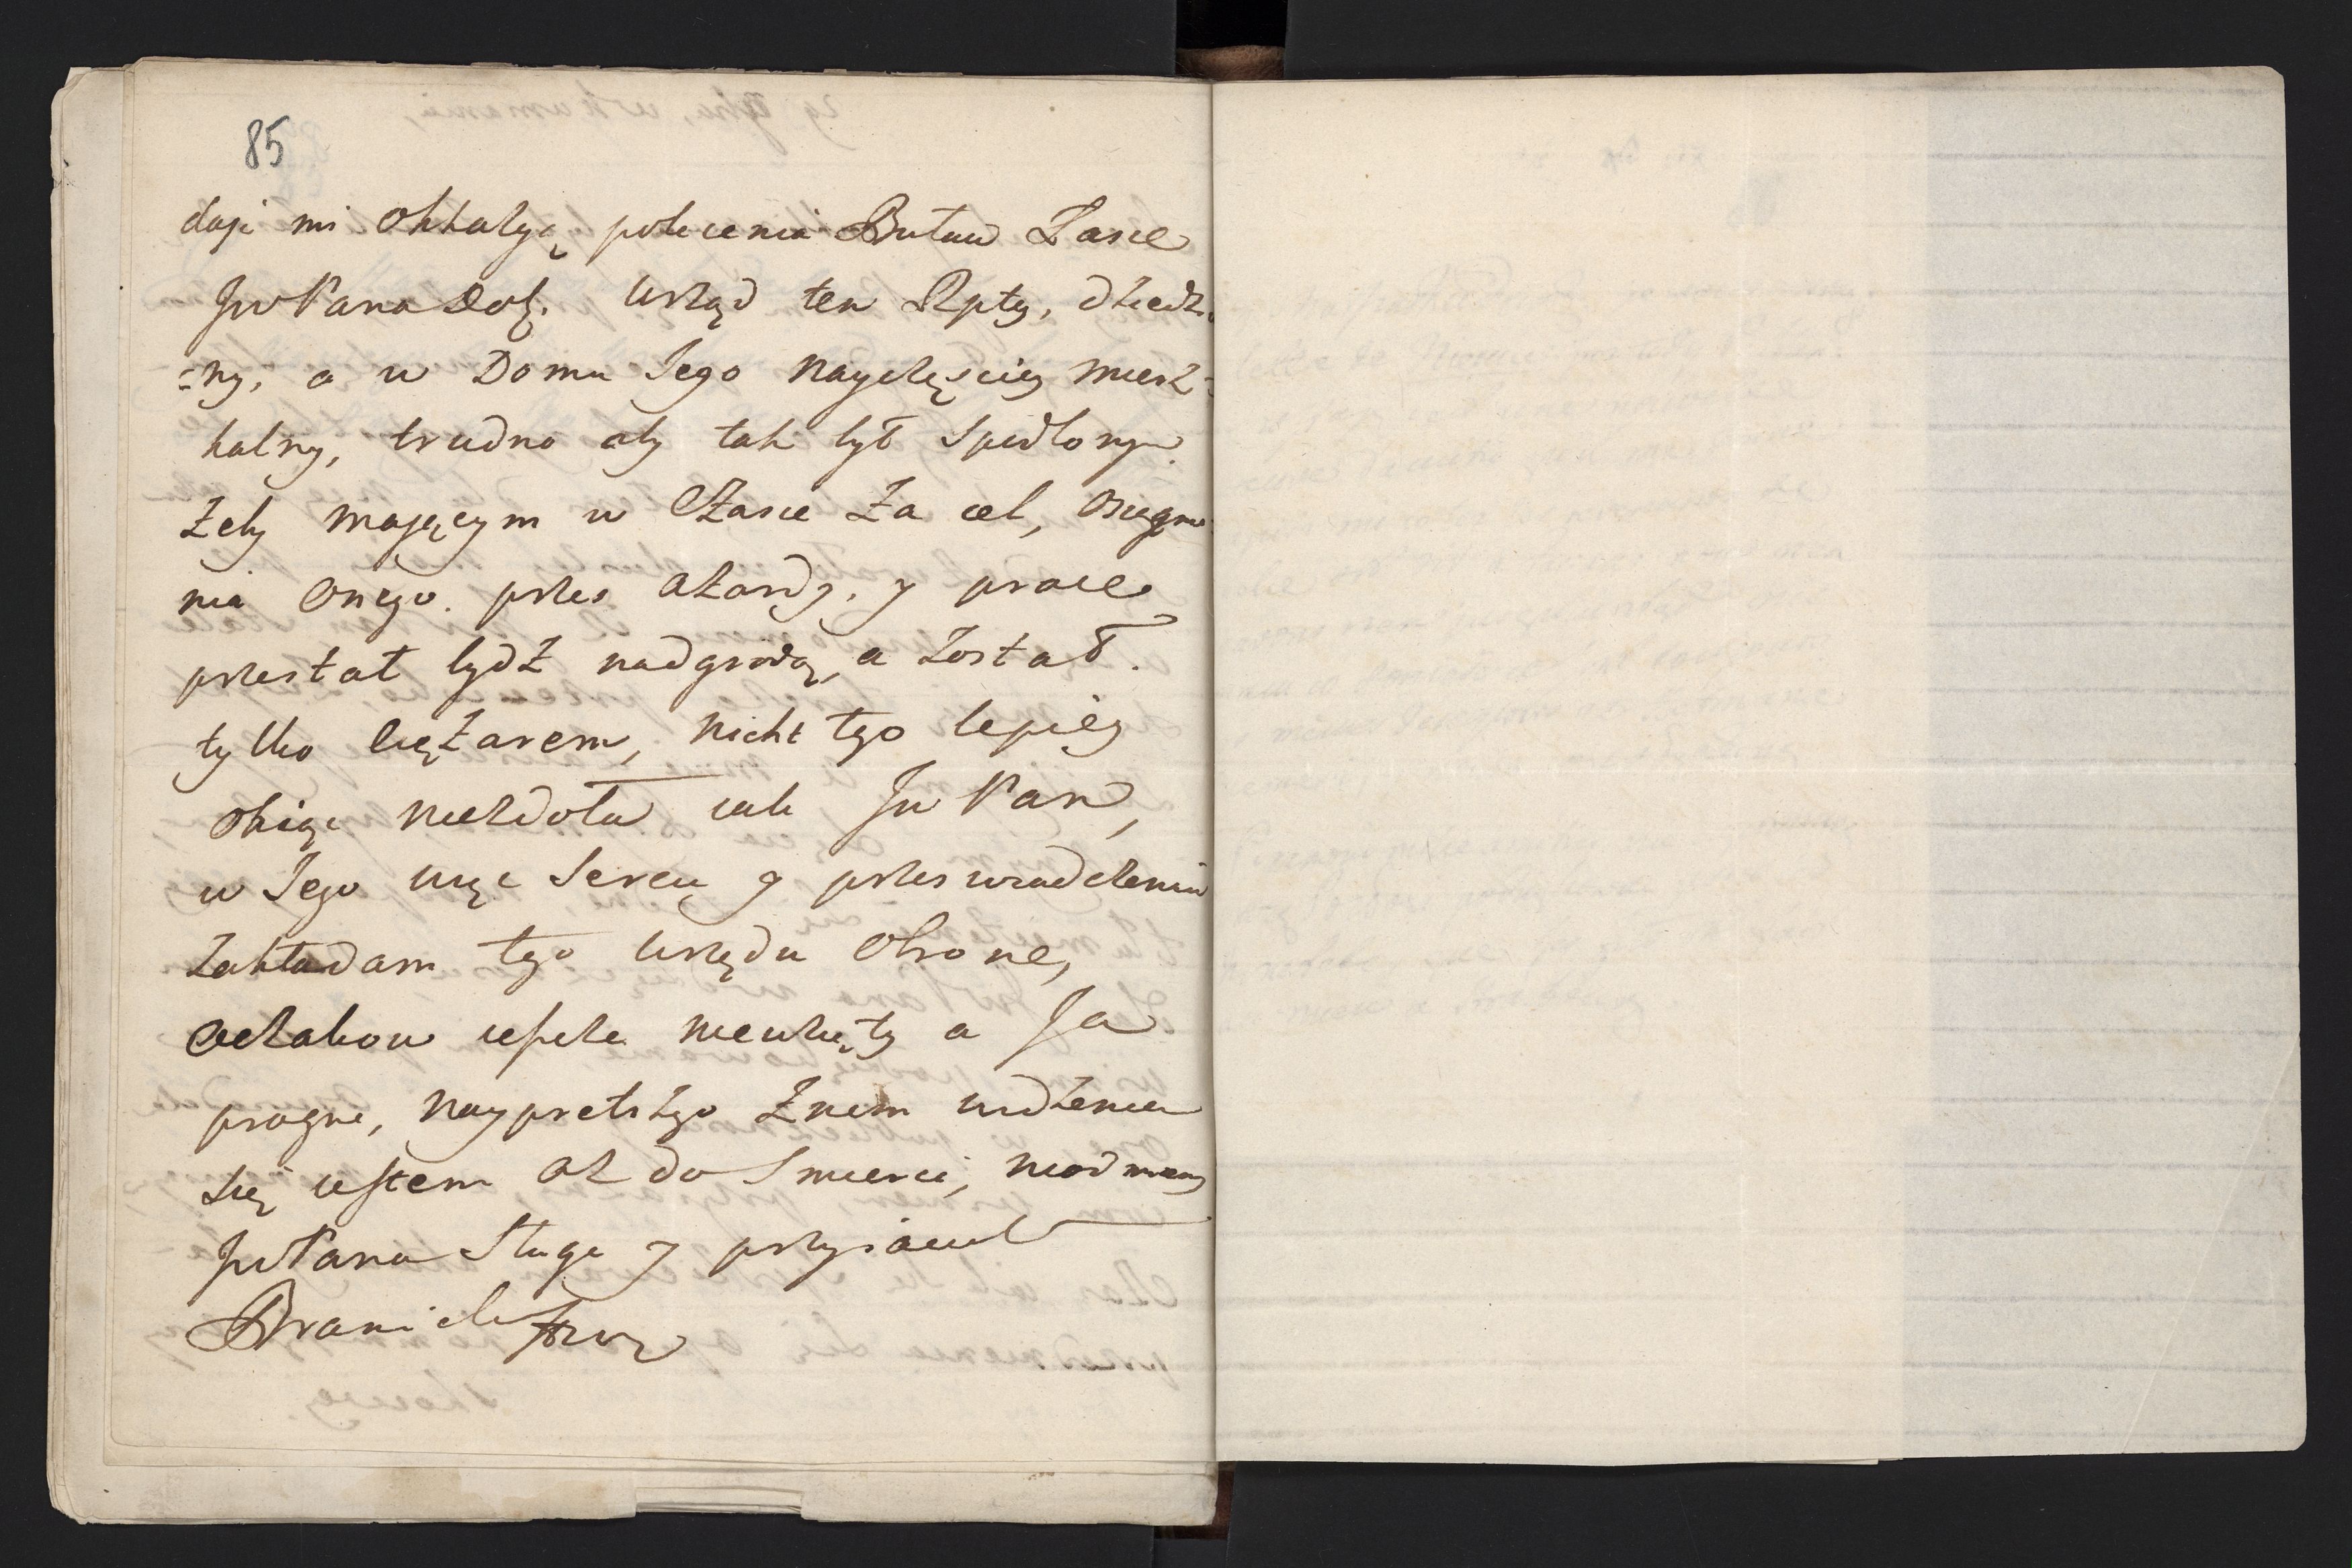 85
daje mi okkazyą polecenia Buław Łasce
JwPana Dob. Urząd ten Rpty, dziedzi
=ny, a w Domu Jego nayczęsciey miesz=
kalny, trudno aby tak był spodlony
żeby mającym w Czasie za cel, osiągnie
nia onego. przes azardy, y prace
przestał bydź nadgrodą, a został.
tylko ciężarem, nicht tego lepiey
okię niezdoła iak Jw Pan,
w Jego więc Sercu y przeswiadczeniu
zakładam tego urzędu obrone,
Oczakow ieszcze niewzięty a Ja
pragne, nayprętszego znim widzenia
się iestem aż do Smierci, nieodmienny
JwPana Sługa y przyiaciel
Branicki